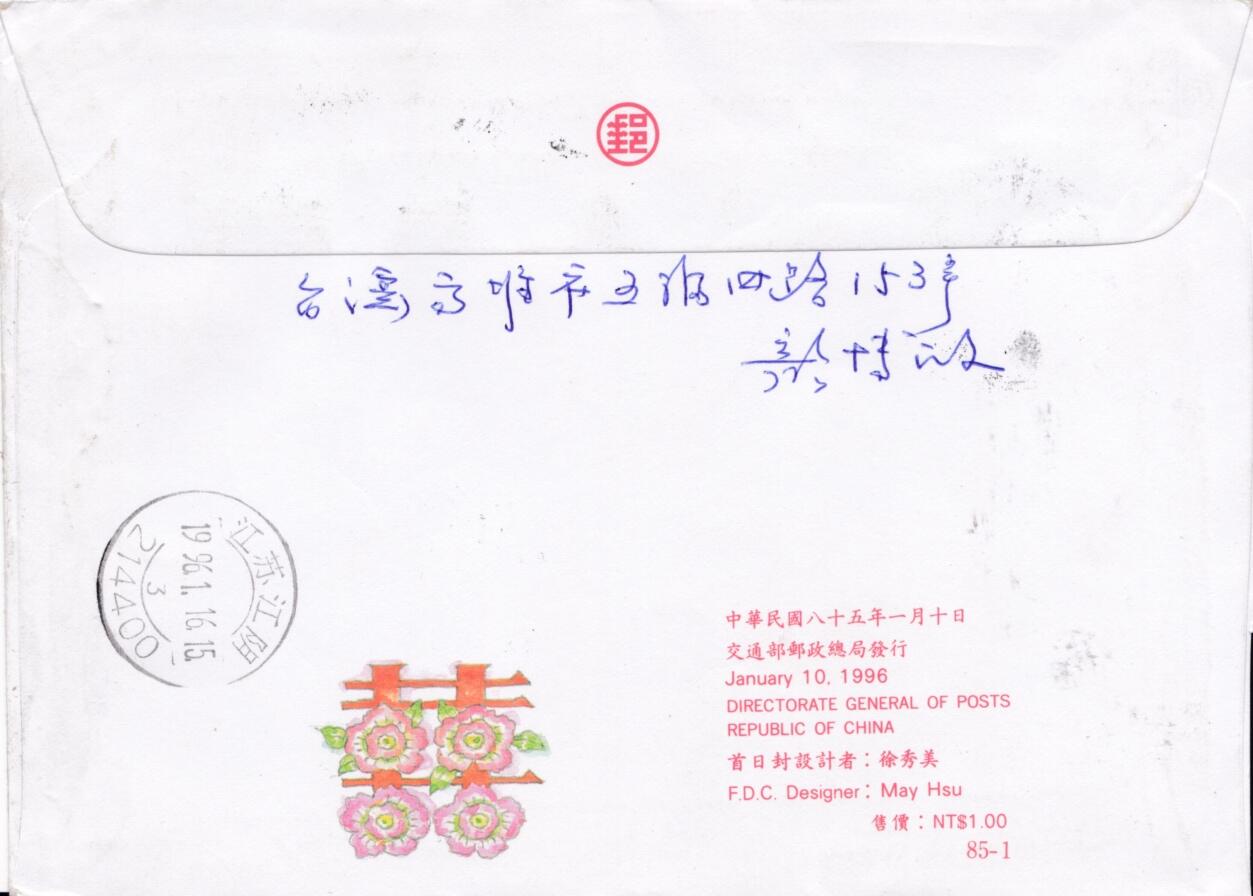 郵
台灣高雄市五福四路153号
江苏江阴
1996.1.16.15
3
214400
中華民國八十五年一月十日
交通部郵政總局發行
January 10, 1996
DIRECTORATE GENERAL OF POSTS
REPUBLIC OF CHINA
首日封設計者：徐秀美
F.D.C. Designer: May Hsu
售價：NT$1.00
85-1